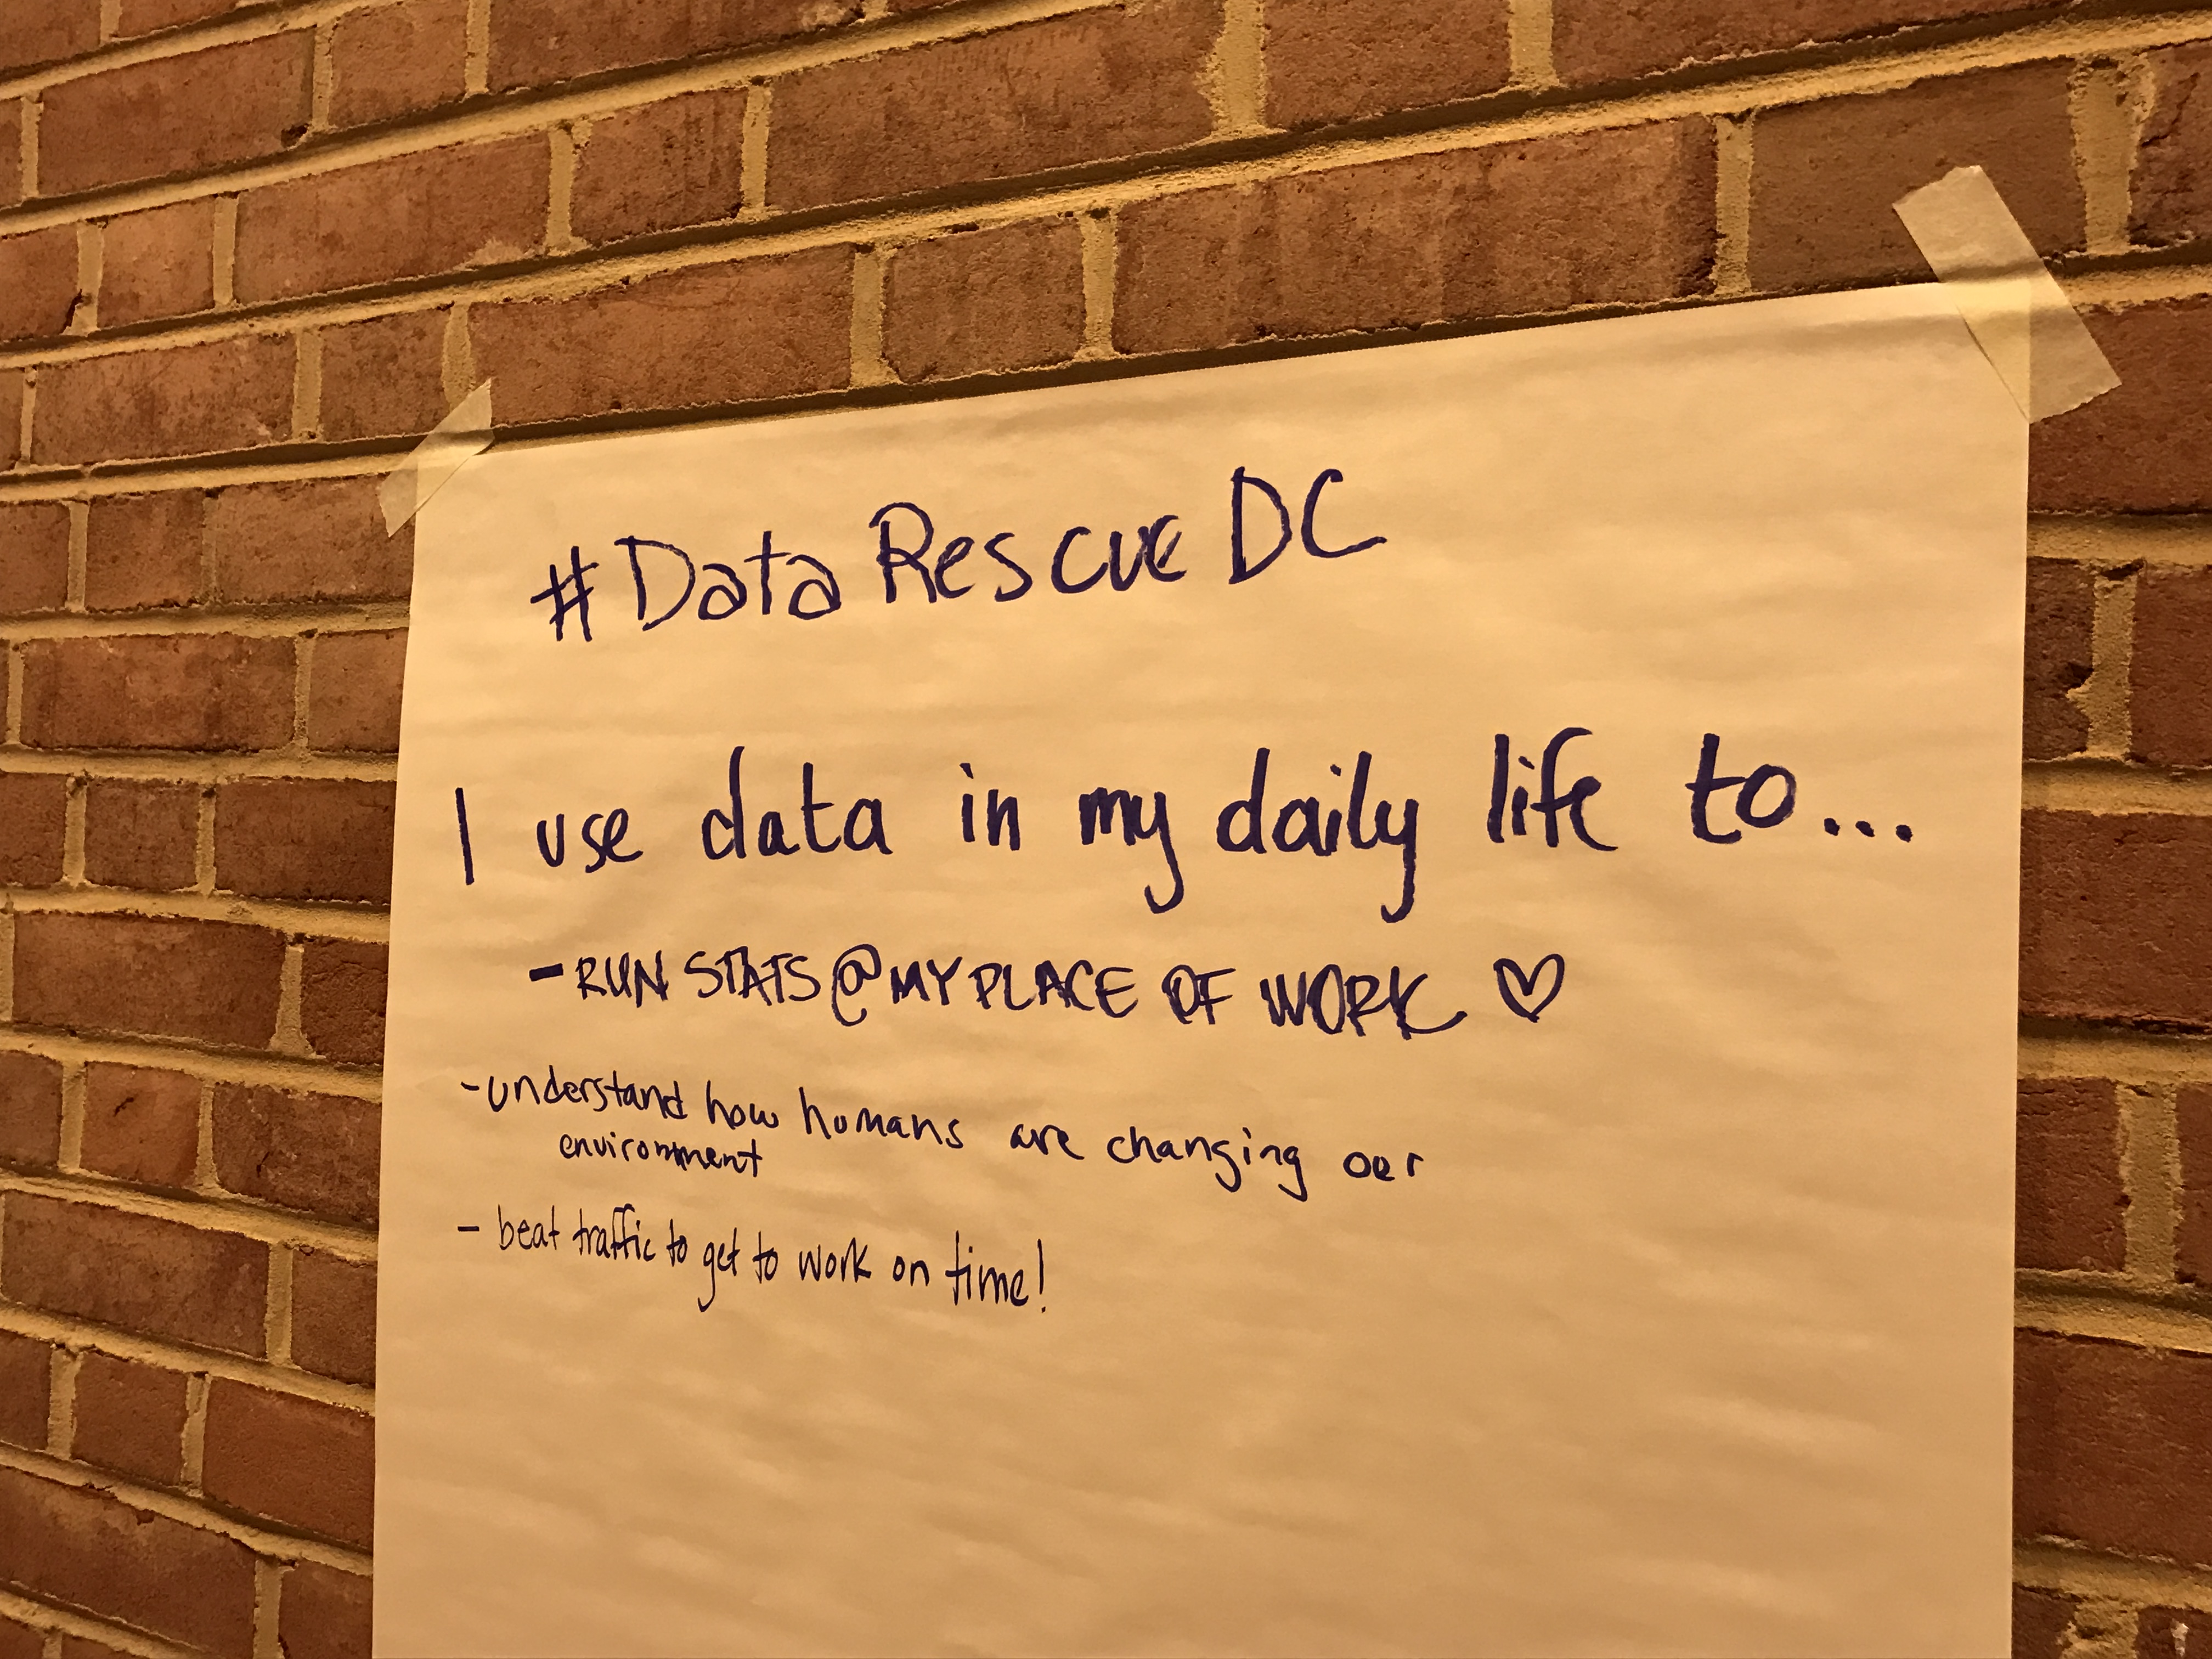 #DataRescueDC
I use data in my daily life to...
- RUN STATS @ MY PLACE OF WORK ♡
- understand how humans are changing our
environment
- beat traffic to get to work on time!